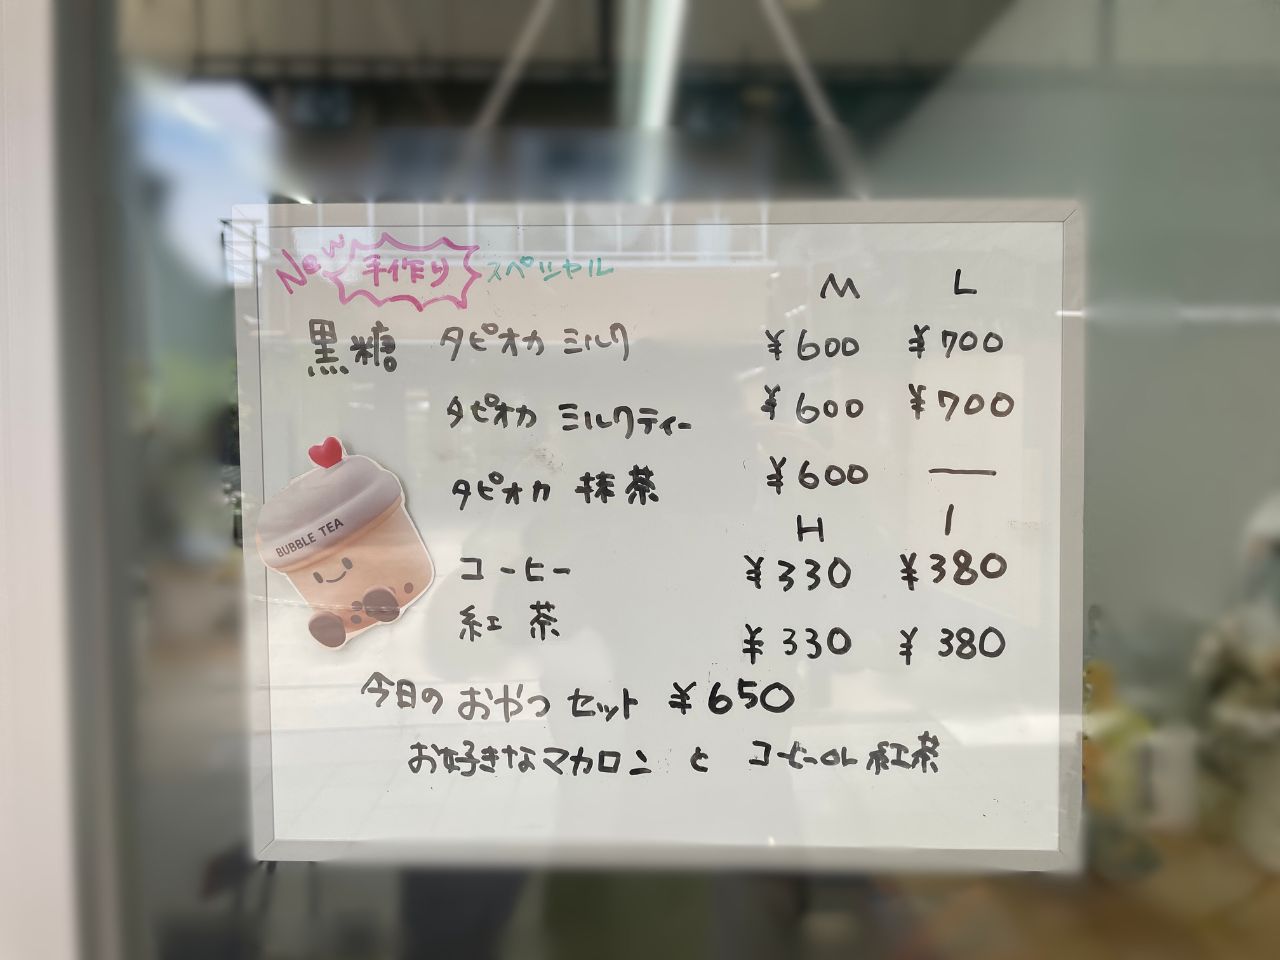 New 手作り スペシャル
M L
黒糖 タピオカ ミルク ¥600 ¥700
タピオカ ミルクティー ¥600 ¥700
タピオカ 抹茶 ¥600 —
H I
BUBBLE TEA
コーヒー ¥330 ¥380
紅茶 ¥330 ¥380
今日の おやつ セット ¥650
お好きなマカロン と コーヒーor 紅茶